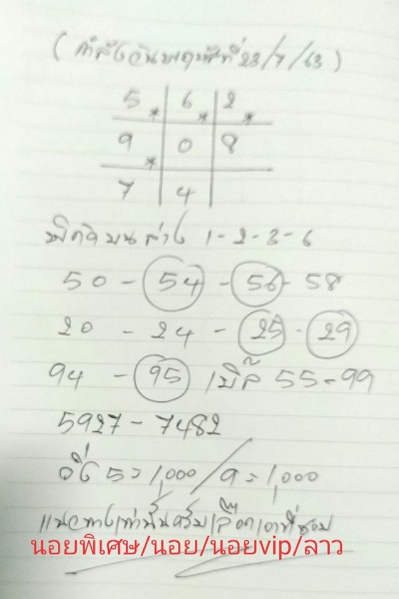 (กำลังวันพฤหัสที่23/7/63)
5 * 6 * 2
9 * 0 * 8
7 4
บน ล่าง 1-2-3-6
50 - 54 - 56 - 58
20 - 24 - 25 - 29
94 - 95 เบิ้ล 55-99
5927 - 7482
วิ่ง 5=1,000/9=1,000
แนวทางเท่านั้นครับเลือกเอาที่ชอบ
นอยพิเศษ/นอย/นอยvip/ลาว